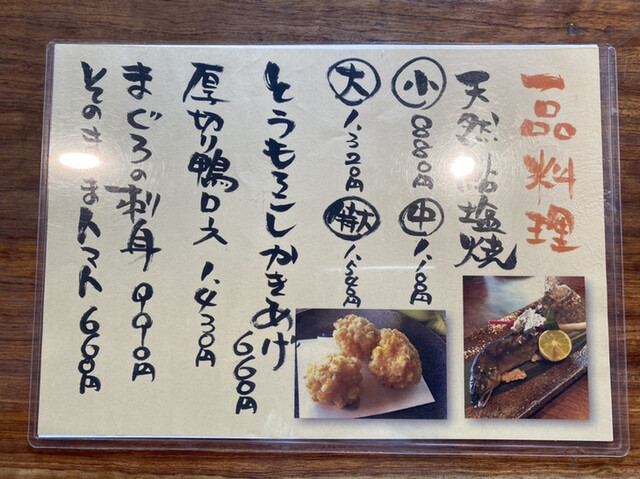 一品料理
天然 鮎塩焼
小 880円 中 1,100円
大 1,320円 特大 1,540円
とうもろこしかきあげ 660円
厚切り鴨ロース 1,430円
まぐろの刺身 990円
そのまま トマト 660円